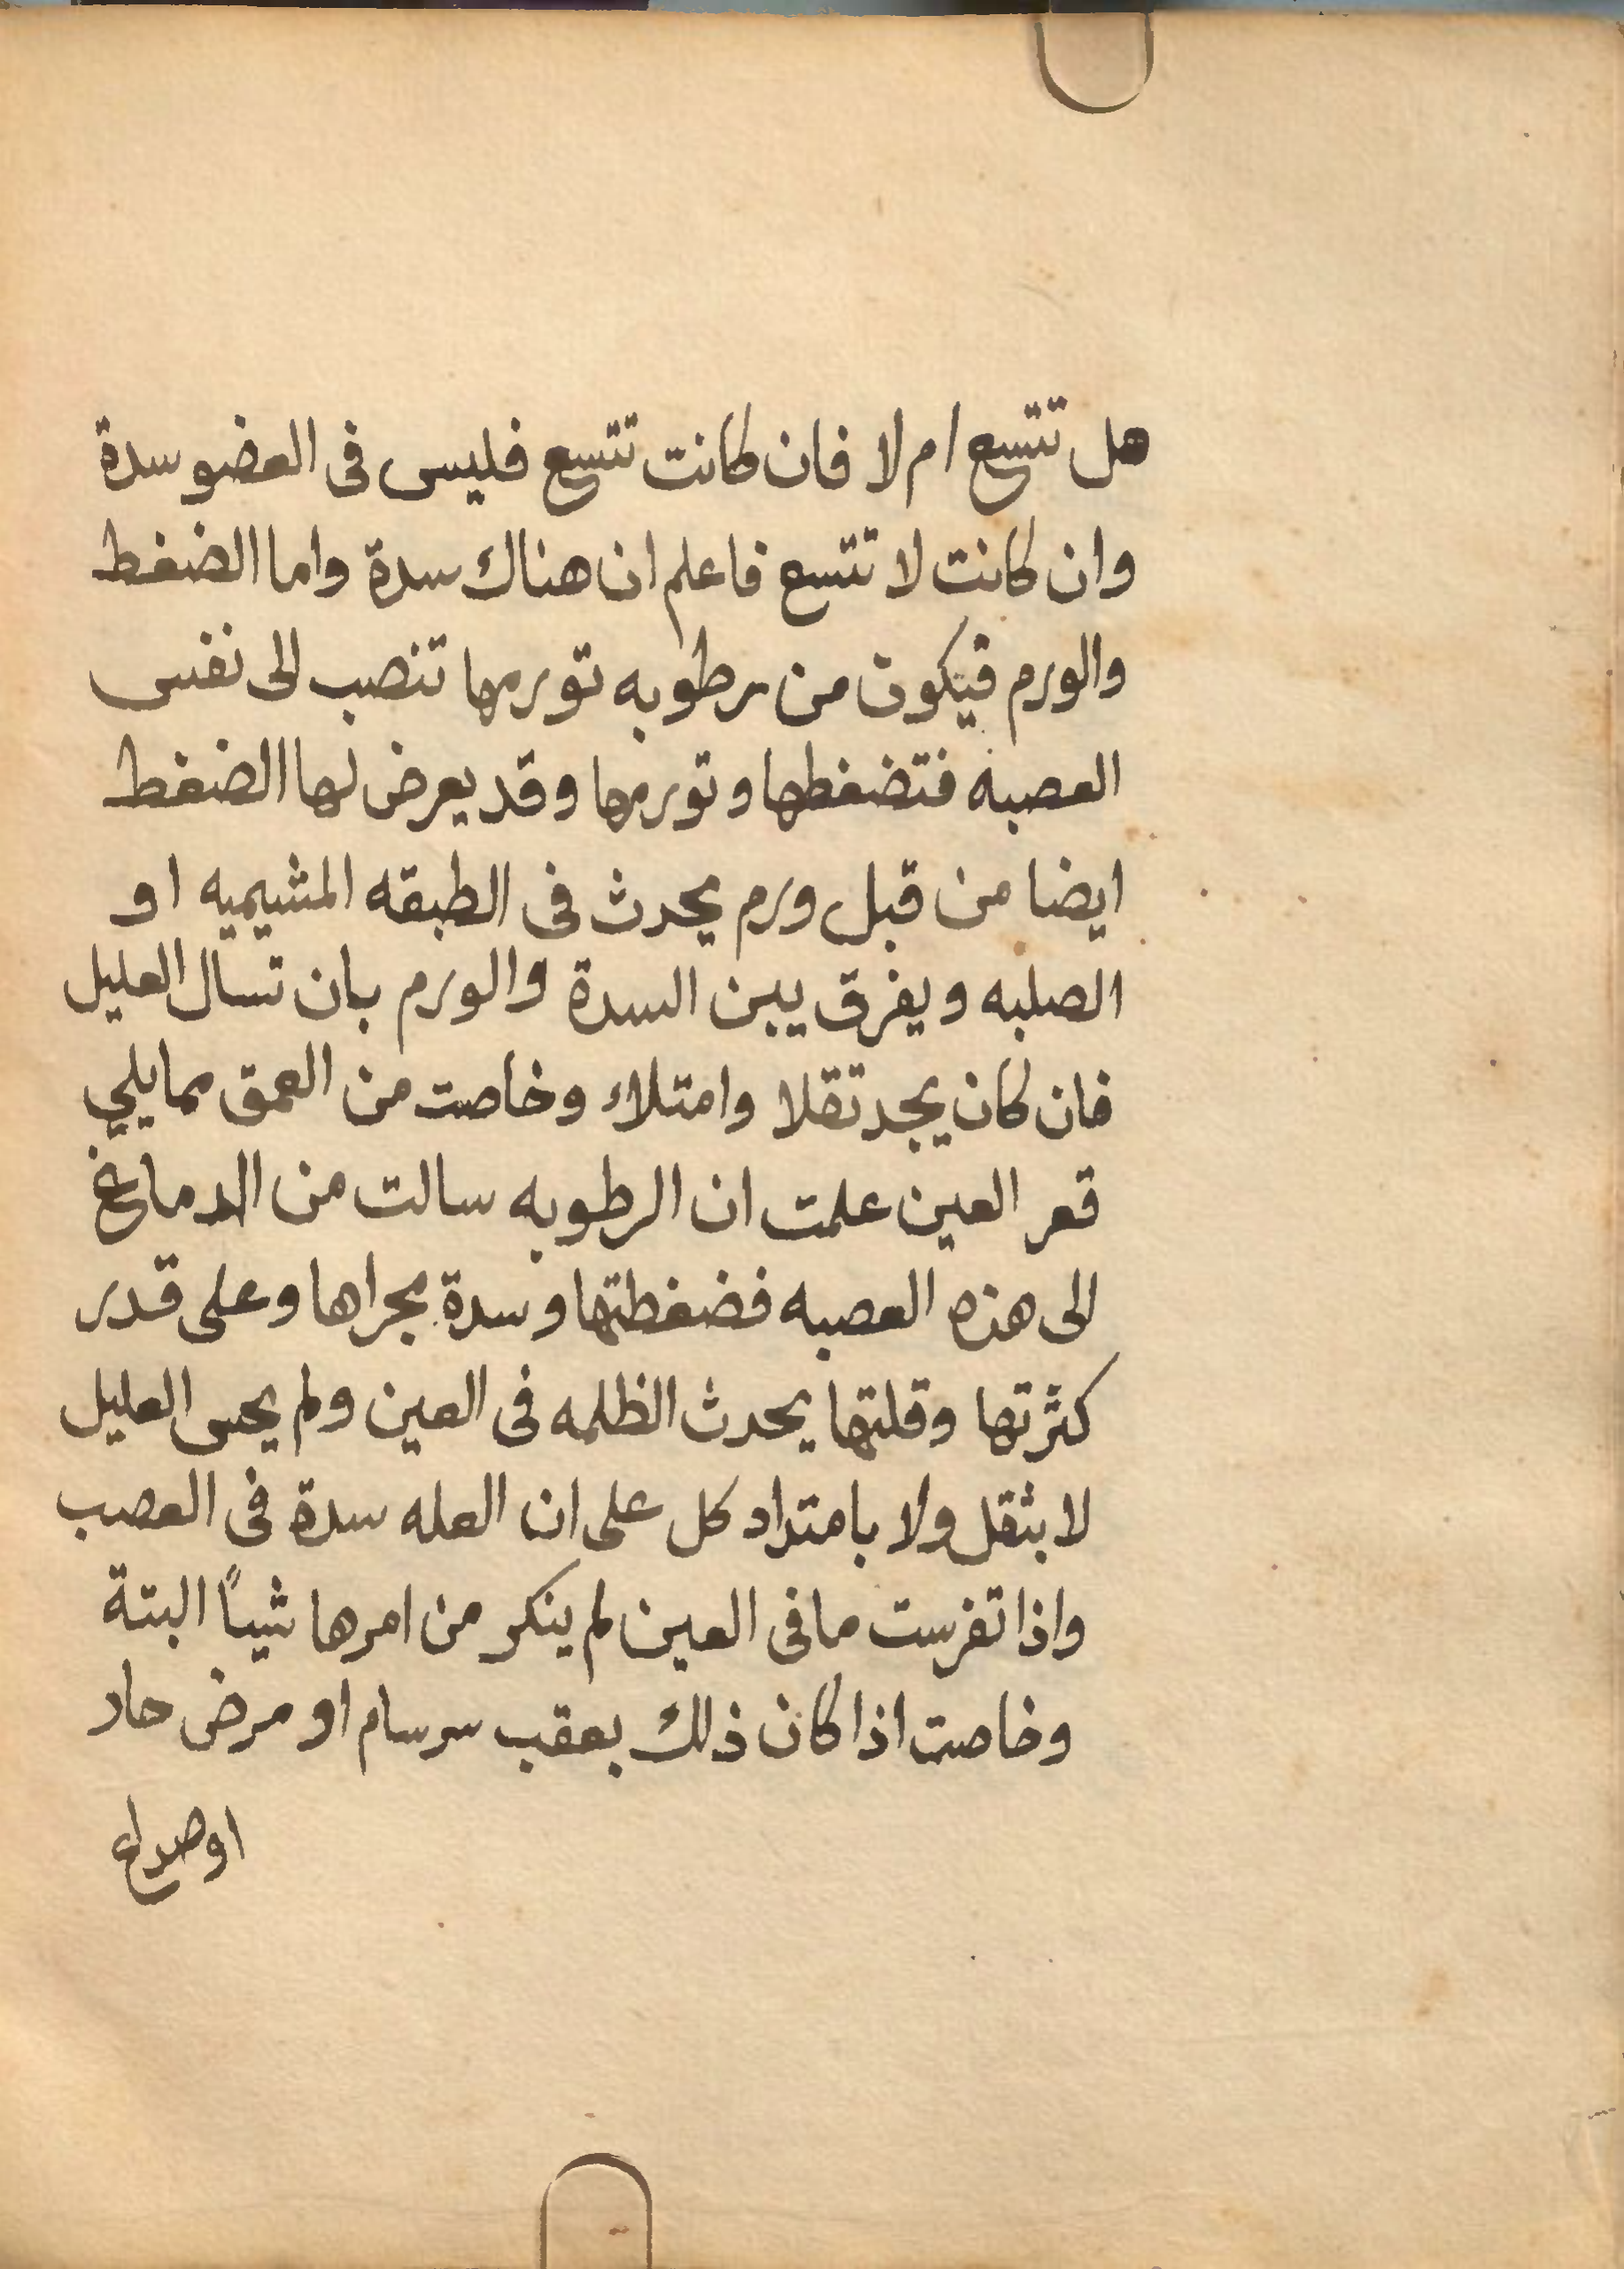 هل تتسع ام لا فان كانت تتسع فليس فى العضو سدة
وان كانت لا تتسع فاعلم ان هناك سدة واما الضغط
والورم فيكون من رطوبه تورمها تنصب الى نفس
العصبه فتضغطها وتورمها وقد يعرض لها الضغط
ايضا من قبل ورم يحدث فى الطبقه المشيميه او
الصلبه ويفرق بين السدة والورم بان تسال العليل
فان كان يجد تقلا وامتلاء وخاصت من العمق مما يلي
قعر العين علمت ان الرطوبه سالت من الدماغ
الى هذه العصبه فضغطتها وسدة مجراها وعلى قدر
كثرتها وقلتها يحدث الظلمه فى العين ولم يحس العليل
لا بثقل ولا بامتداد كل على ان العله سدة فى العصب
واذا تفرست مافى العين لم ينكر من امرها شياً البتة
وخاصت اذا كان ذلك بعقب سرسام او مرض حاد
اوصداع